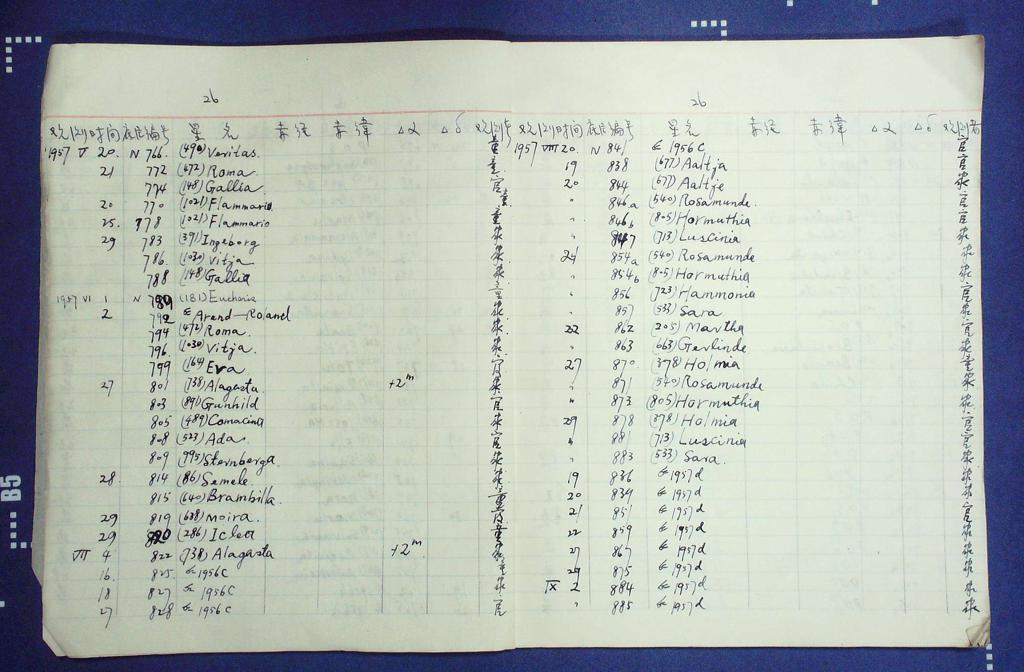 26
观测时间 底片编号 星名 赤经 赤纬 Δα Δδ
1957 V 20. N 766. (490) Veritas. 董
21 772 (472) Roma. 董
774 (148) Gallia. 宦
20 770 (1021) Flammario 董
25. 778 (1021) Flammario 董
29 783 (391) Ingeborg 张
786. (1030) Vitja 张
788 (148) Gallia 张
1957 VI 1 N 789 (181) Eucharis
2 792 Arend-Roland 张
794 (472) Roma. 张
796. (1030) Vitja. 张
799 (164) Eva 宦
27 801 (738) Alagasta +2m 张
803 (891) Gunhild 宦
805 (489) Comacina 张
808 (523) Ada. 宦
809 (995) Sternberga. 张
28 814 (86) Semele. 张
815 (640) Brambilla. 董
29 819 (638) Moira.
29 820 (286) Iclea 董
VII 4 822 (738) Alagasta +2m 张
16. 825. 1956c
18 827 1956c 张
27 828 1956c 宦
26
观测时间 底片编号 星名 赤经 赤纬 Δα Δδ 观测者
1957 VIII 20. N 841 1956c 宦
19 838 (677) Aaltje 宦
20 844 (677) Aaltje 张
" 846a (540) Rosamunde. 宦
" 846b (805) Hormuthia 宦
" 847 (713) Luscinia 张
24 854a (540) Rosamunde 张
" 854b (805) Hormuthia 张
" 856 (723) Hammonia 宦
" 857 (533) Sara 张
22 862 (205) Martha 宦
" 863 (663) Gerlinde 张
27 870. (378) Holmia 董
" 871 (540) Rosamunde 张
" 873 (805) Hormuthia 张
29 878 (378) Holmia 宦
" 881 (713) Luscinia 宦
" 883 (533) Sara. 张
19 836 1957d 张
20 839 1957d 张
21 851 1957d 宦
22 859 1957d 张
27 867 1957d 张
29 875 1957d 张
IX 2 884 1957d 张
" 885 1957d 张
B5